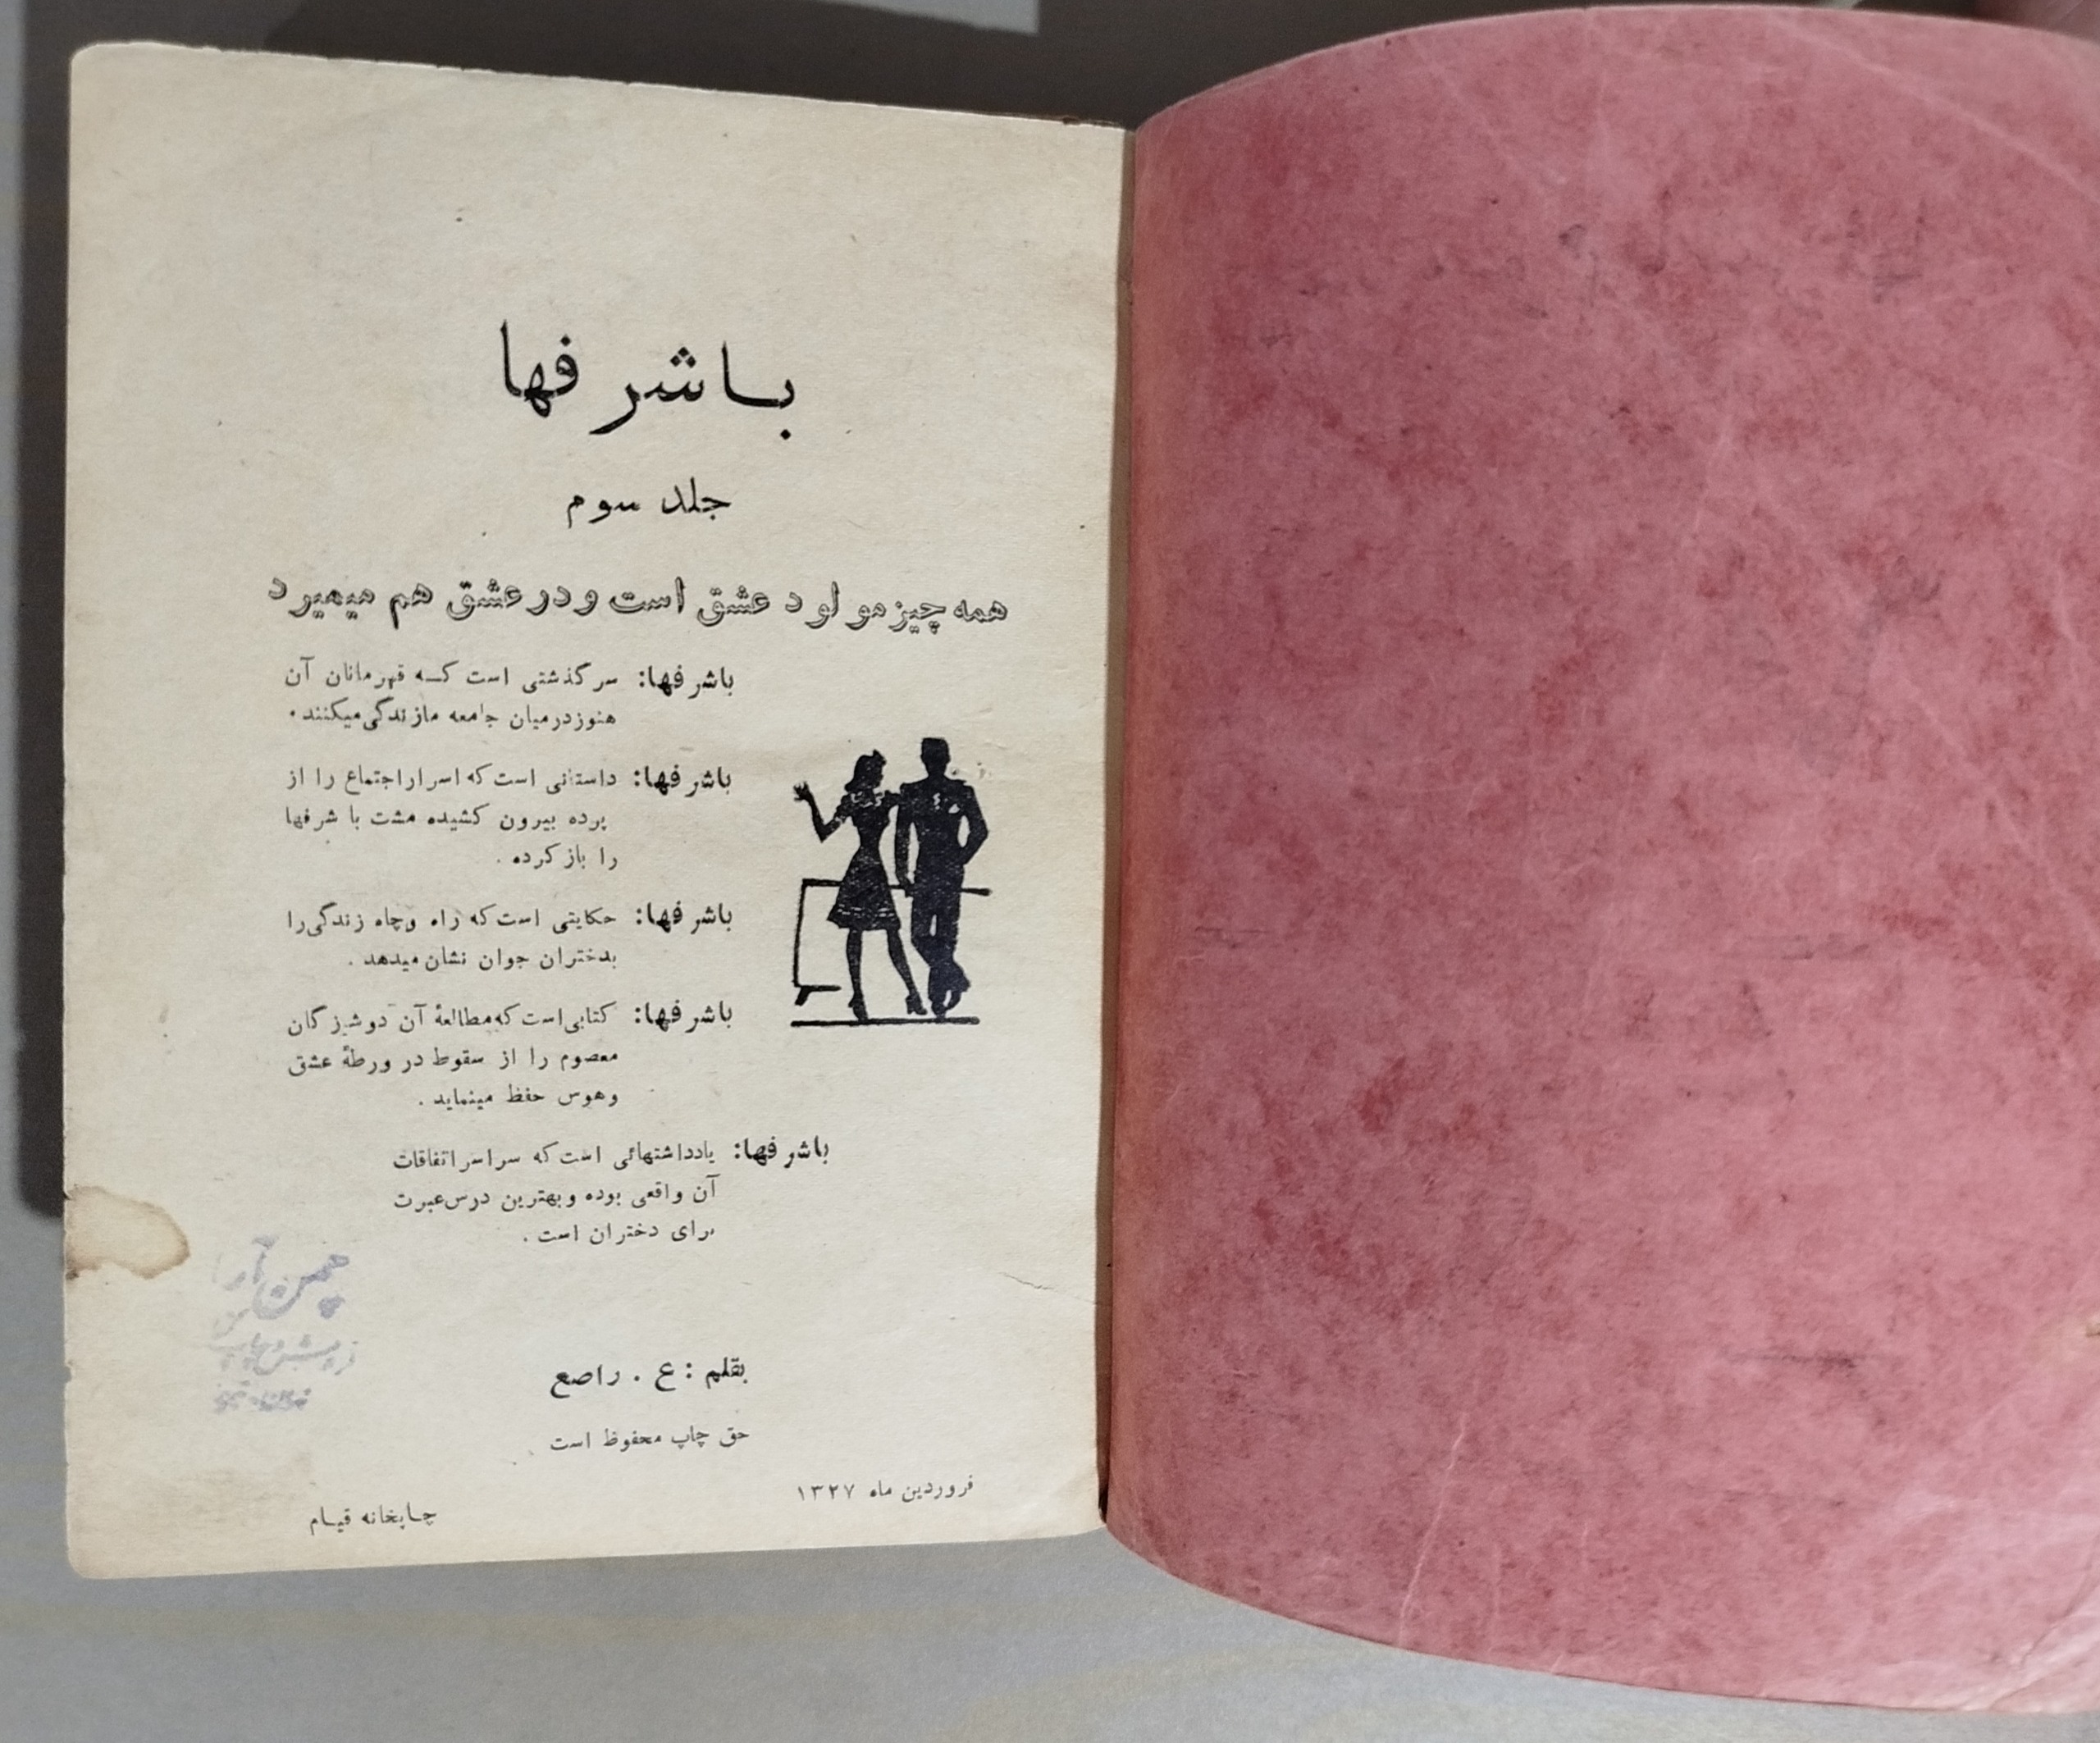 باشرفها
جلد سوم
همه چیز مولود عشق است و در عشق هم میمیرد
باشرفها: سرگذشتی است که قهرمانان آن
هنوز درمیان جامعه ما زندگی میکنند.
باشرفها: داستانی است که اسرار اجتماع را از
پرده بیرون کشیده مشت با شرفها
را باز کرده.
باشرفها: حکایتی است که راه و چاه زندگی را
بدختران جوان نشان میدهد.
باشرفها: کتابی است که مطالعهٔ آن دوشیزگان
معصوم را از سقوط در ورطهٔ عشق
وهوس حفظ مینماید.
باشرفها: یادداشتهائی است که سراسر اتفاقات
آن واقعی بوده و بهترین درس عبرت
برای دختران است.
چمن آرا
بقلم: ع. راصع
حق چاپ محفوظ است
فروردین ماه ۱۳۲۷
چاپخانه قیام